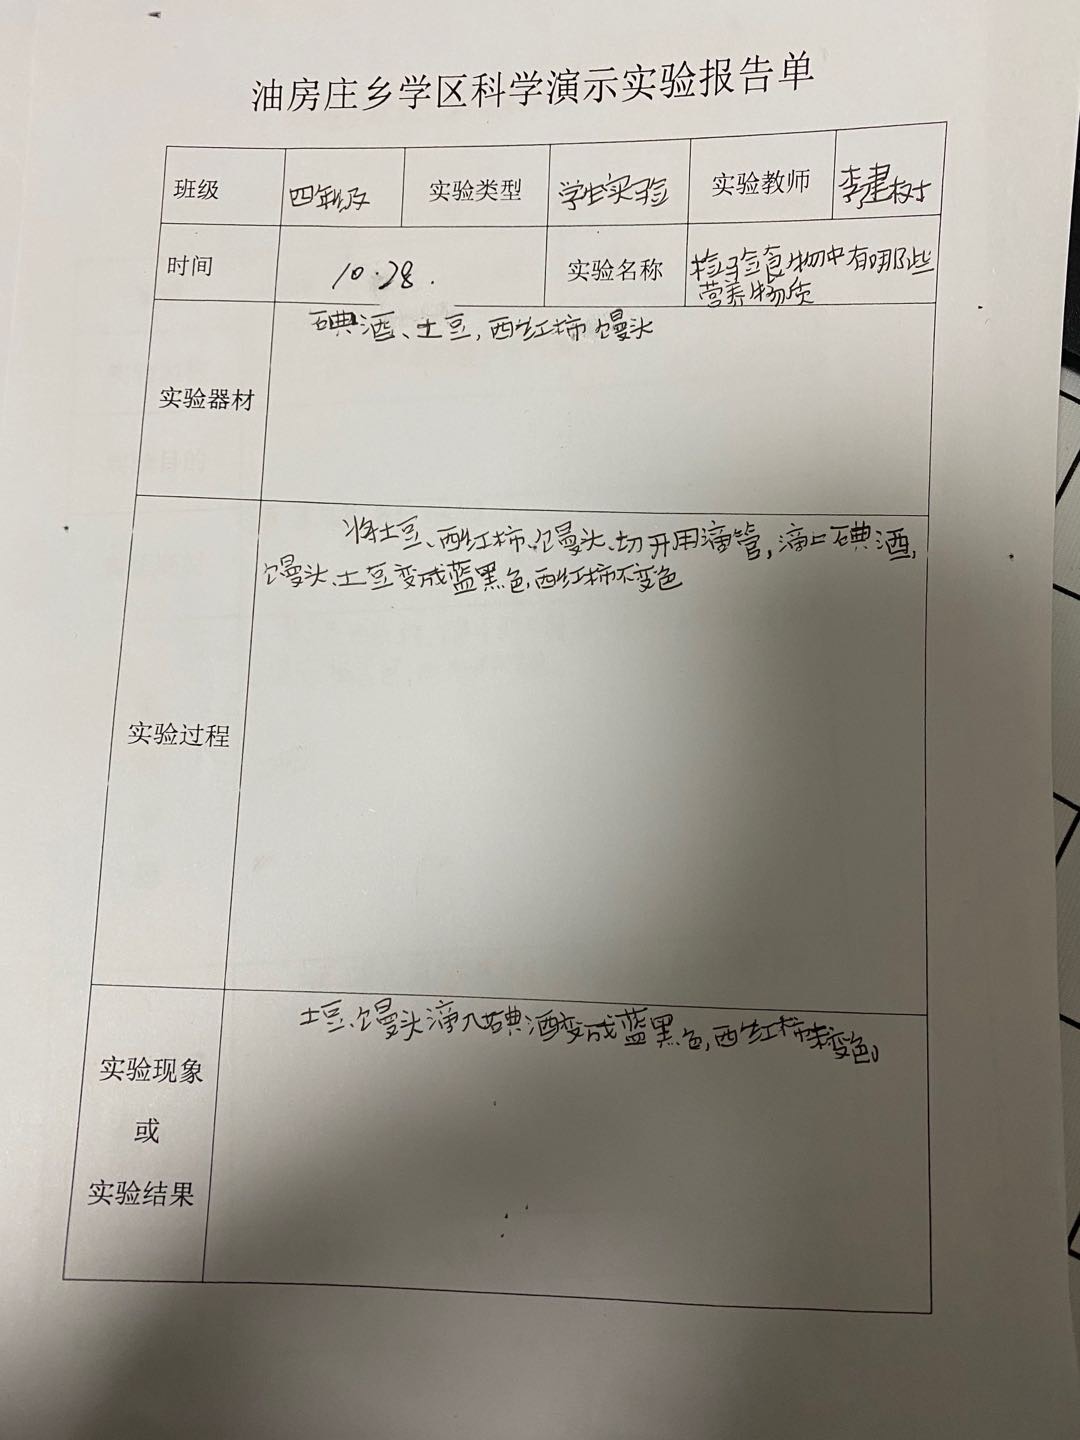 油房庄乡学区科学演示实验报告单
班级 四年级 实验类型 学生实验 实验教师 李建树
时间 10.28. 实验名称 检验食物中有哪些
营养物质
实验器材 碘酒、土豆,西红柿馒头
将土豆、西红柿、馒头、切开用滴管,滴上碘酒,
馒头、土豆变成蓝黑色,西红柿不变色
实验过程
土豆、馒头滴入碘酒变成蓝黑色,西红柿未变色。
实验现象
或
实验结果